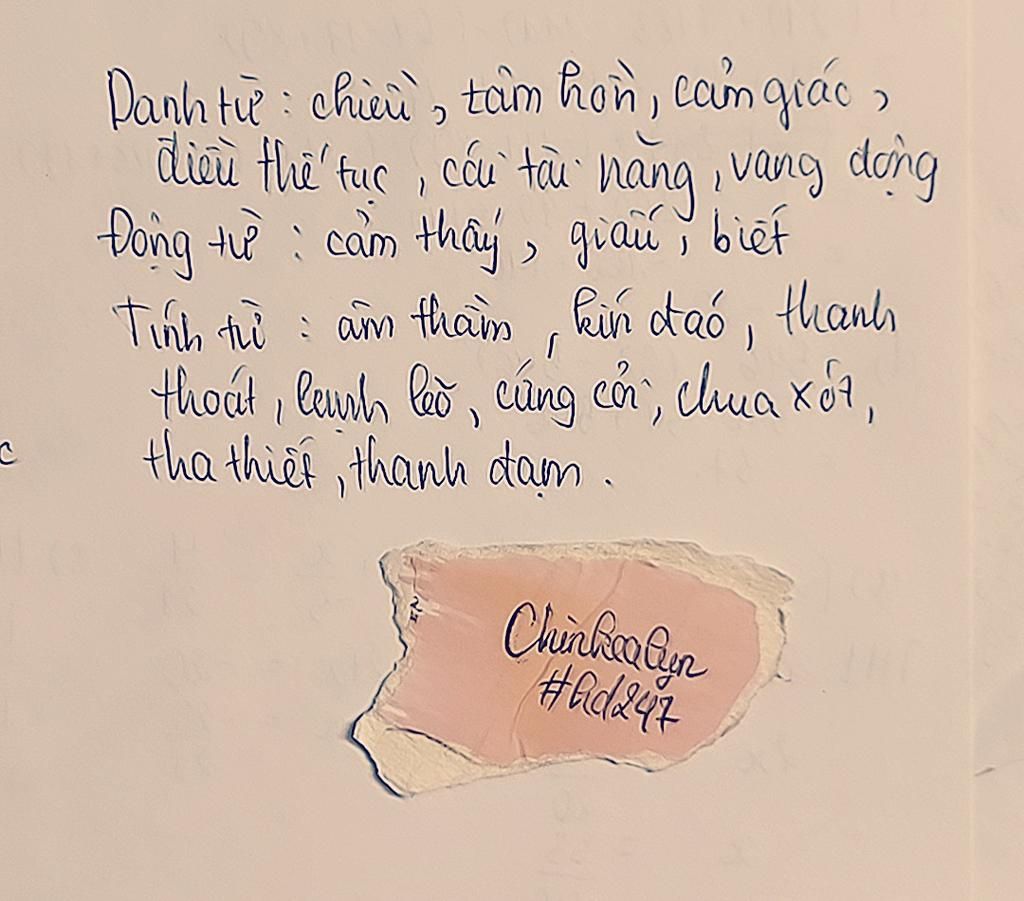 Danh từ : chiều, tâm hồn, cảm giác,
điều thế tục, cái tài năng, vang dộng
Động từ : cảm thấy, giấu, biết
Tính từ : âm thầm, kín đáo, thanh
thoát, lạnh lẽo, cứng cỏi, chua xót,
tha thiết, thanh đạm.
#Gd247